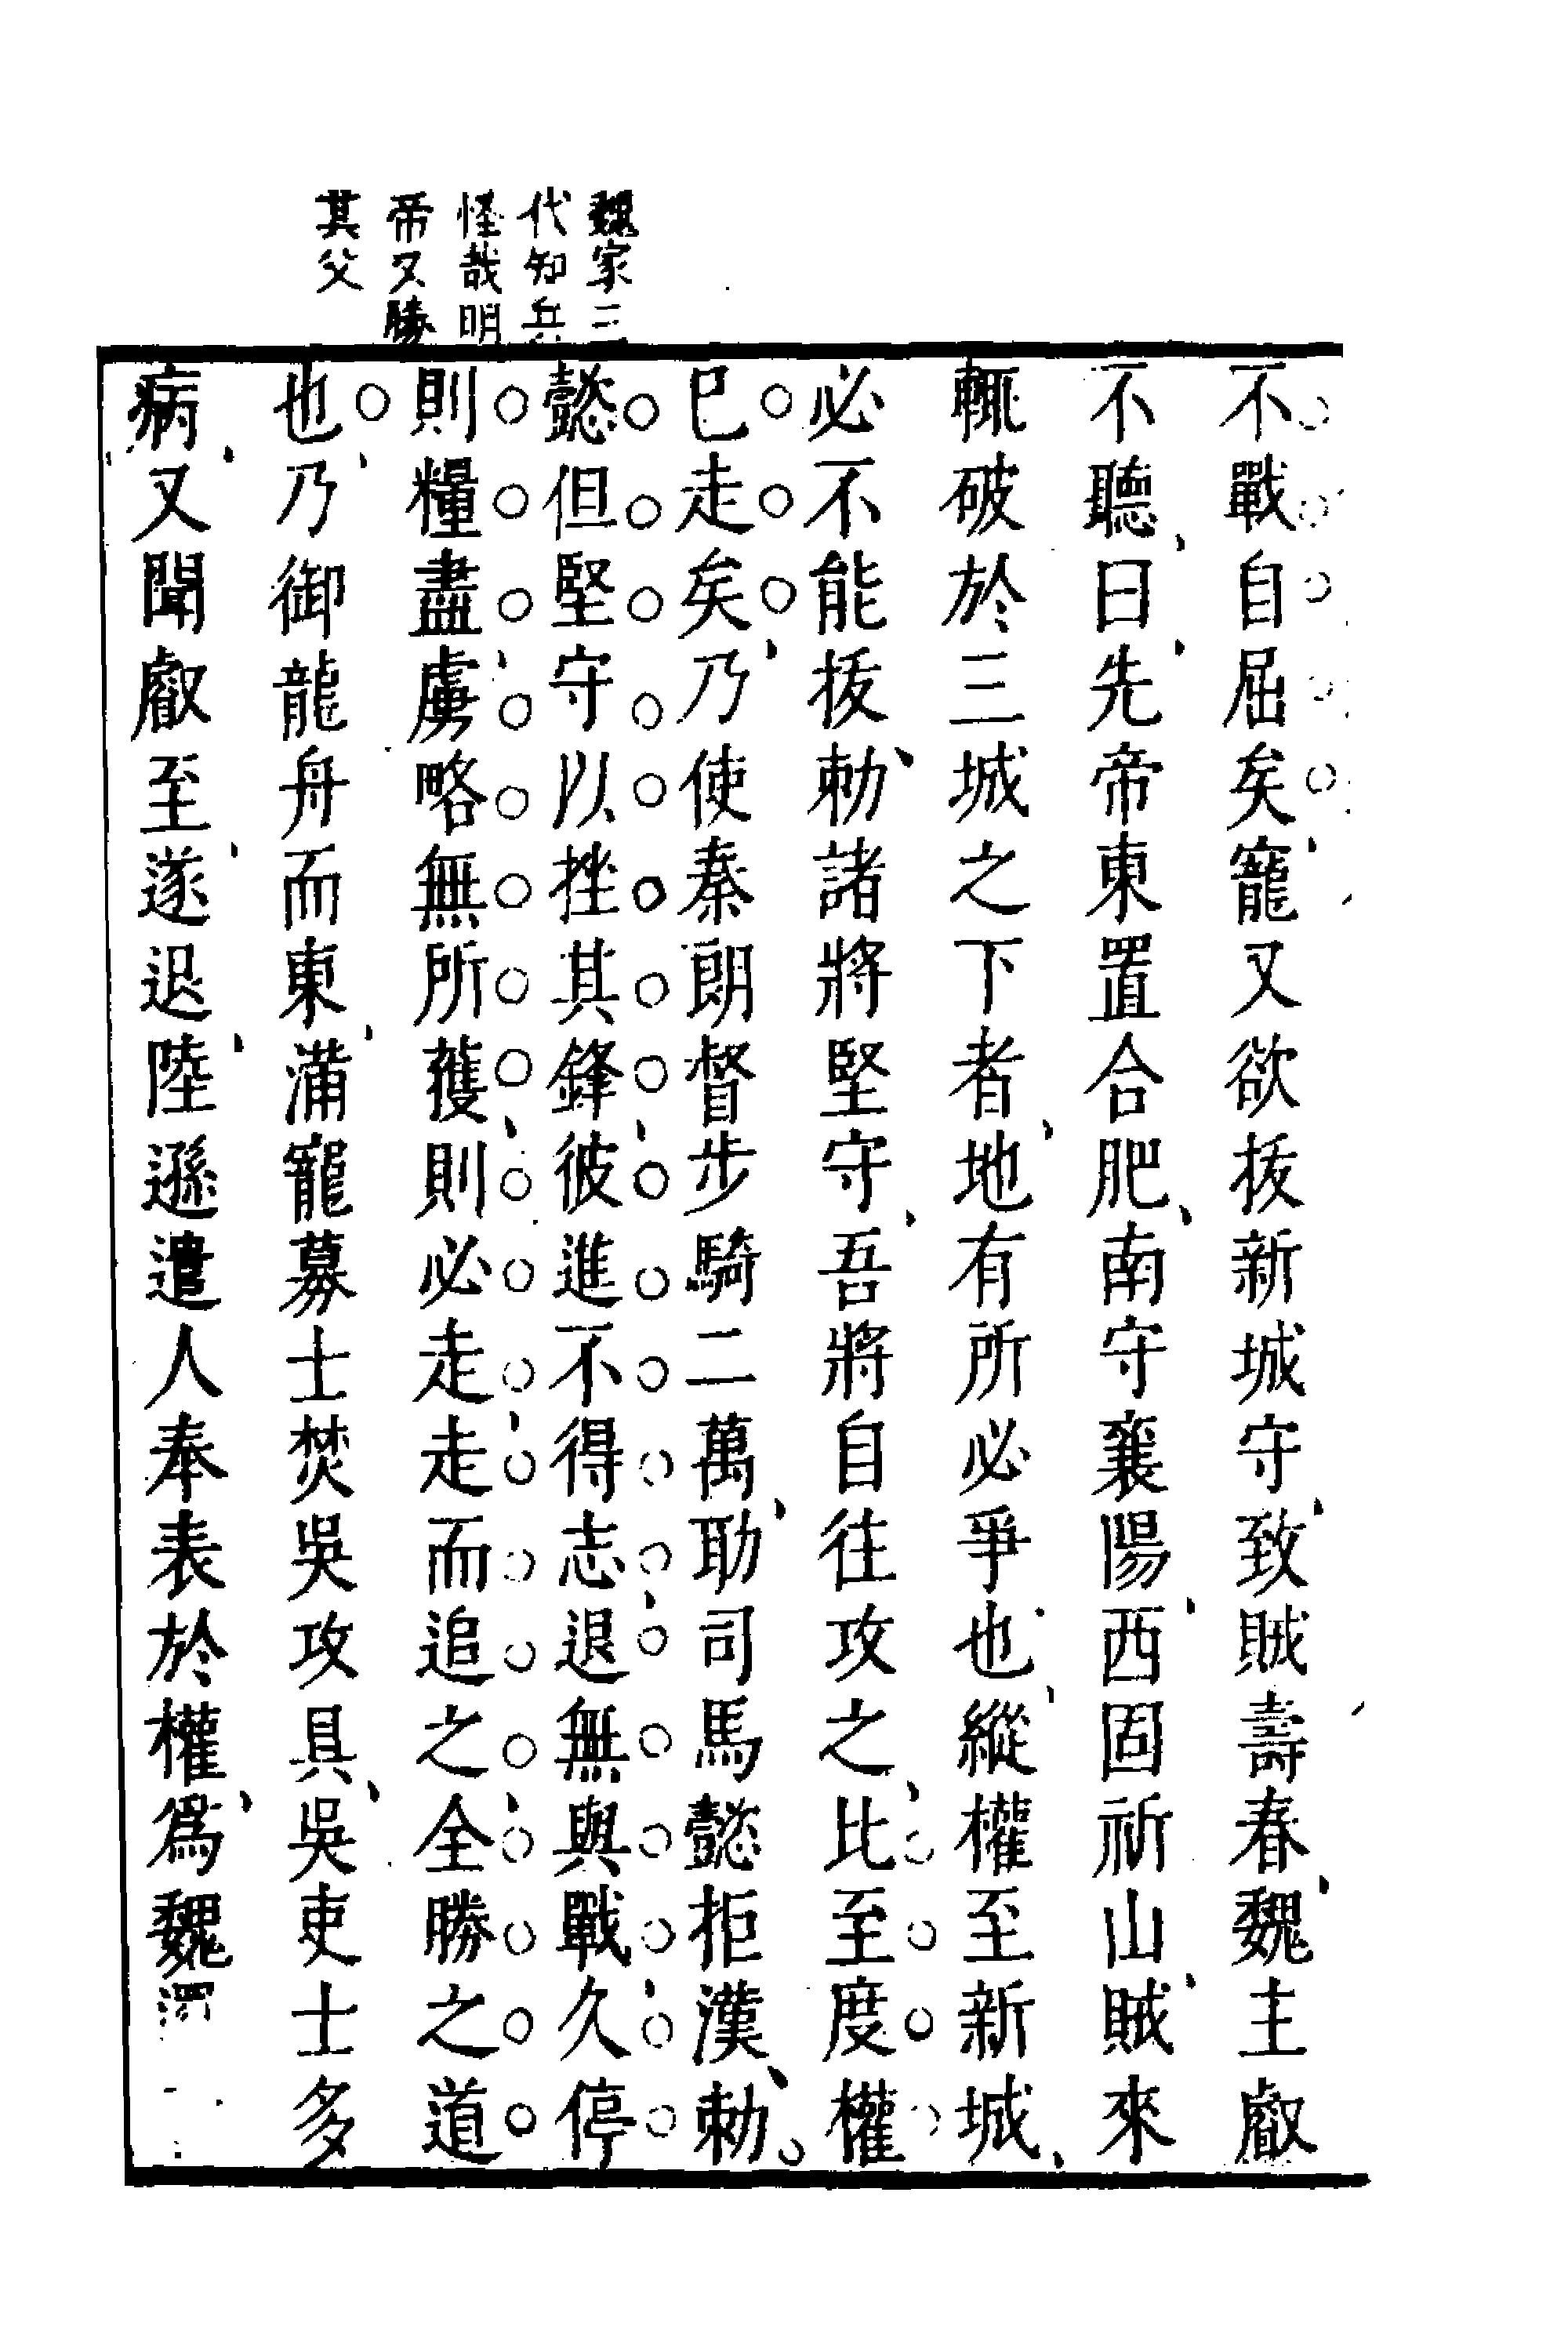 魏家三
代知兵
怪哉明
帝又勝
其父
不戰自屈矣寵又欲拔新城守致賊壽春魏主叡
不聽曰先帝東置合肥南守襄陽西固祈山賊來
輒破於三城之下者地有所必爭也縱權至新城
必不能拔勅諸將堅守吾將自往攻之比至度權
已走矣乃使秦朗督步騎二萬助司馬懿拒漢勅
懿但堅守以挫其鋒彼進不得志退無與戰久停
則糧盡虜略無所獲則必走走而追之全勝之道
也乃御龍舟而東滿寵募士焚吳攻具吳吏士多
病又聞叡至遂退陸遜遣人奉表於權爲魏